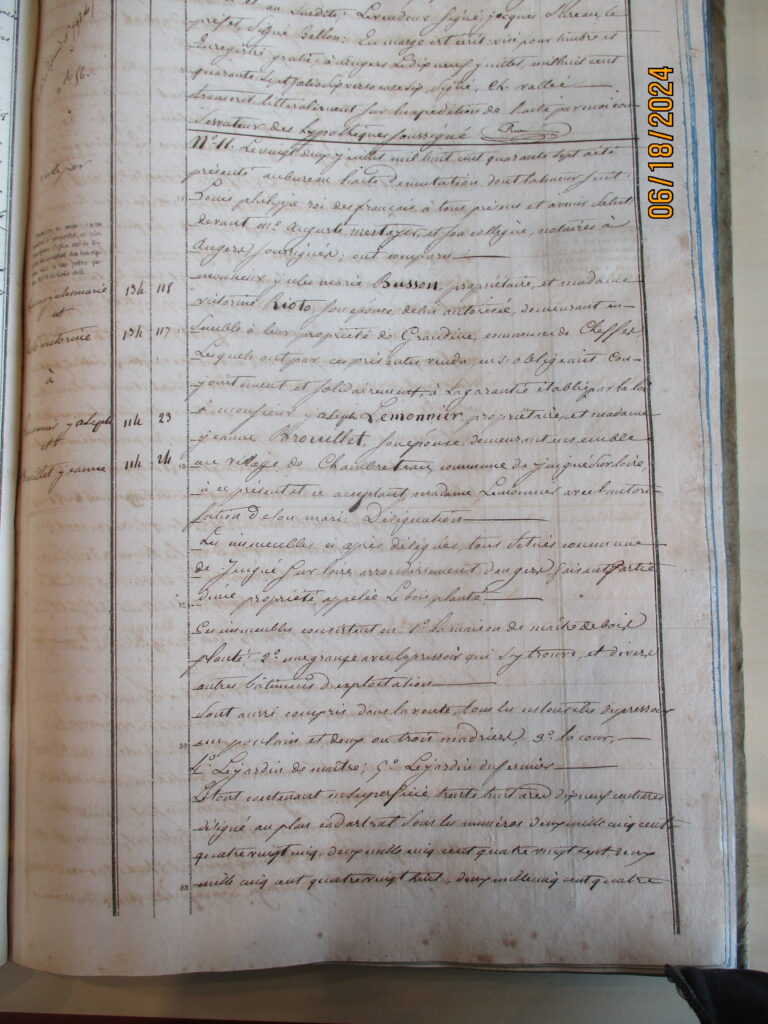 et au Susdite. Le vendeur Signé, jacques Mureau, le
préfet, Signé Bellon. En marge est écrit: visé pour timbre et
Enregistré gratis, à Angers Le dix neuf juillet, mil huit cent
quarante Sept, folio verso case Six, Signé, Ch. vallée
transcrit littéralement Sur l'expédition de l'acte par moi con-
servateur des hypothèques Soussigné
06/18/2024
N° 11. Le vingt deux juillet mil huit cent quarante Sept a été
présenté au bureau l'acte de mutation dont la teneur Suit:
Louis philippe roi des français à tous présens et avenir Salut
Devant Me Auguste mestayer, et Son collègue, notaires à
Angers, Soussignés; ont comparu
monsieur jules marie Busson, propriétaire, et madame
134 118
victorine Rioto, Son épouse, de lui autorisée, demeurant en-
et
134 117
victorine
semble à leur propriété de Grandine, commune de Cheffes,
Lesquels ont par ces présentes vendu, en s'obligeant con-
à
jointement et Solidairement, à la garantie établie par la loi
à monsieur joseph Lemonnier, propriétaire, et madame
114 23
jeanne Brouillet, Son épouse, demeurant ensemble
et
jeanne
114 24
au village de Chambreteau, commune de juigné Sur loire,
à ce présent et ce acceptant, madame Lemonnier avec l'autori-
sation de Son mari. Désignation
Les immeubles ci après désignés, tous Situés commune
de juigné Sur loire arrondissement d'angers, faisant partie
d'une propriété, appelée Le bois planté
Ces immeubles consistent en: 1° la maison de maître de bois
planté; 2° une grange avec le pressoir qui S'y trouve, et divers
autres bâtimens d'exploitation
Sont aussi compris dans la vente, tous les ustensiles du pressoir
un poulain et deux ou trois madriers, 3° la cour,
4° Le jardin de maître; 5° Le jardin du fermier
Le tout contenant en Superficie, trente huit ares dix neuf centiares
désigné au plan cadastral Sous les numéros deux mille cinq cent
quatre vingt cinq, deux mille cinq cent quatre vingt Sept, deux
mille cinq cent quatre vingt huit, deux mille cinq cent quatre